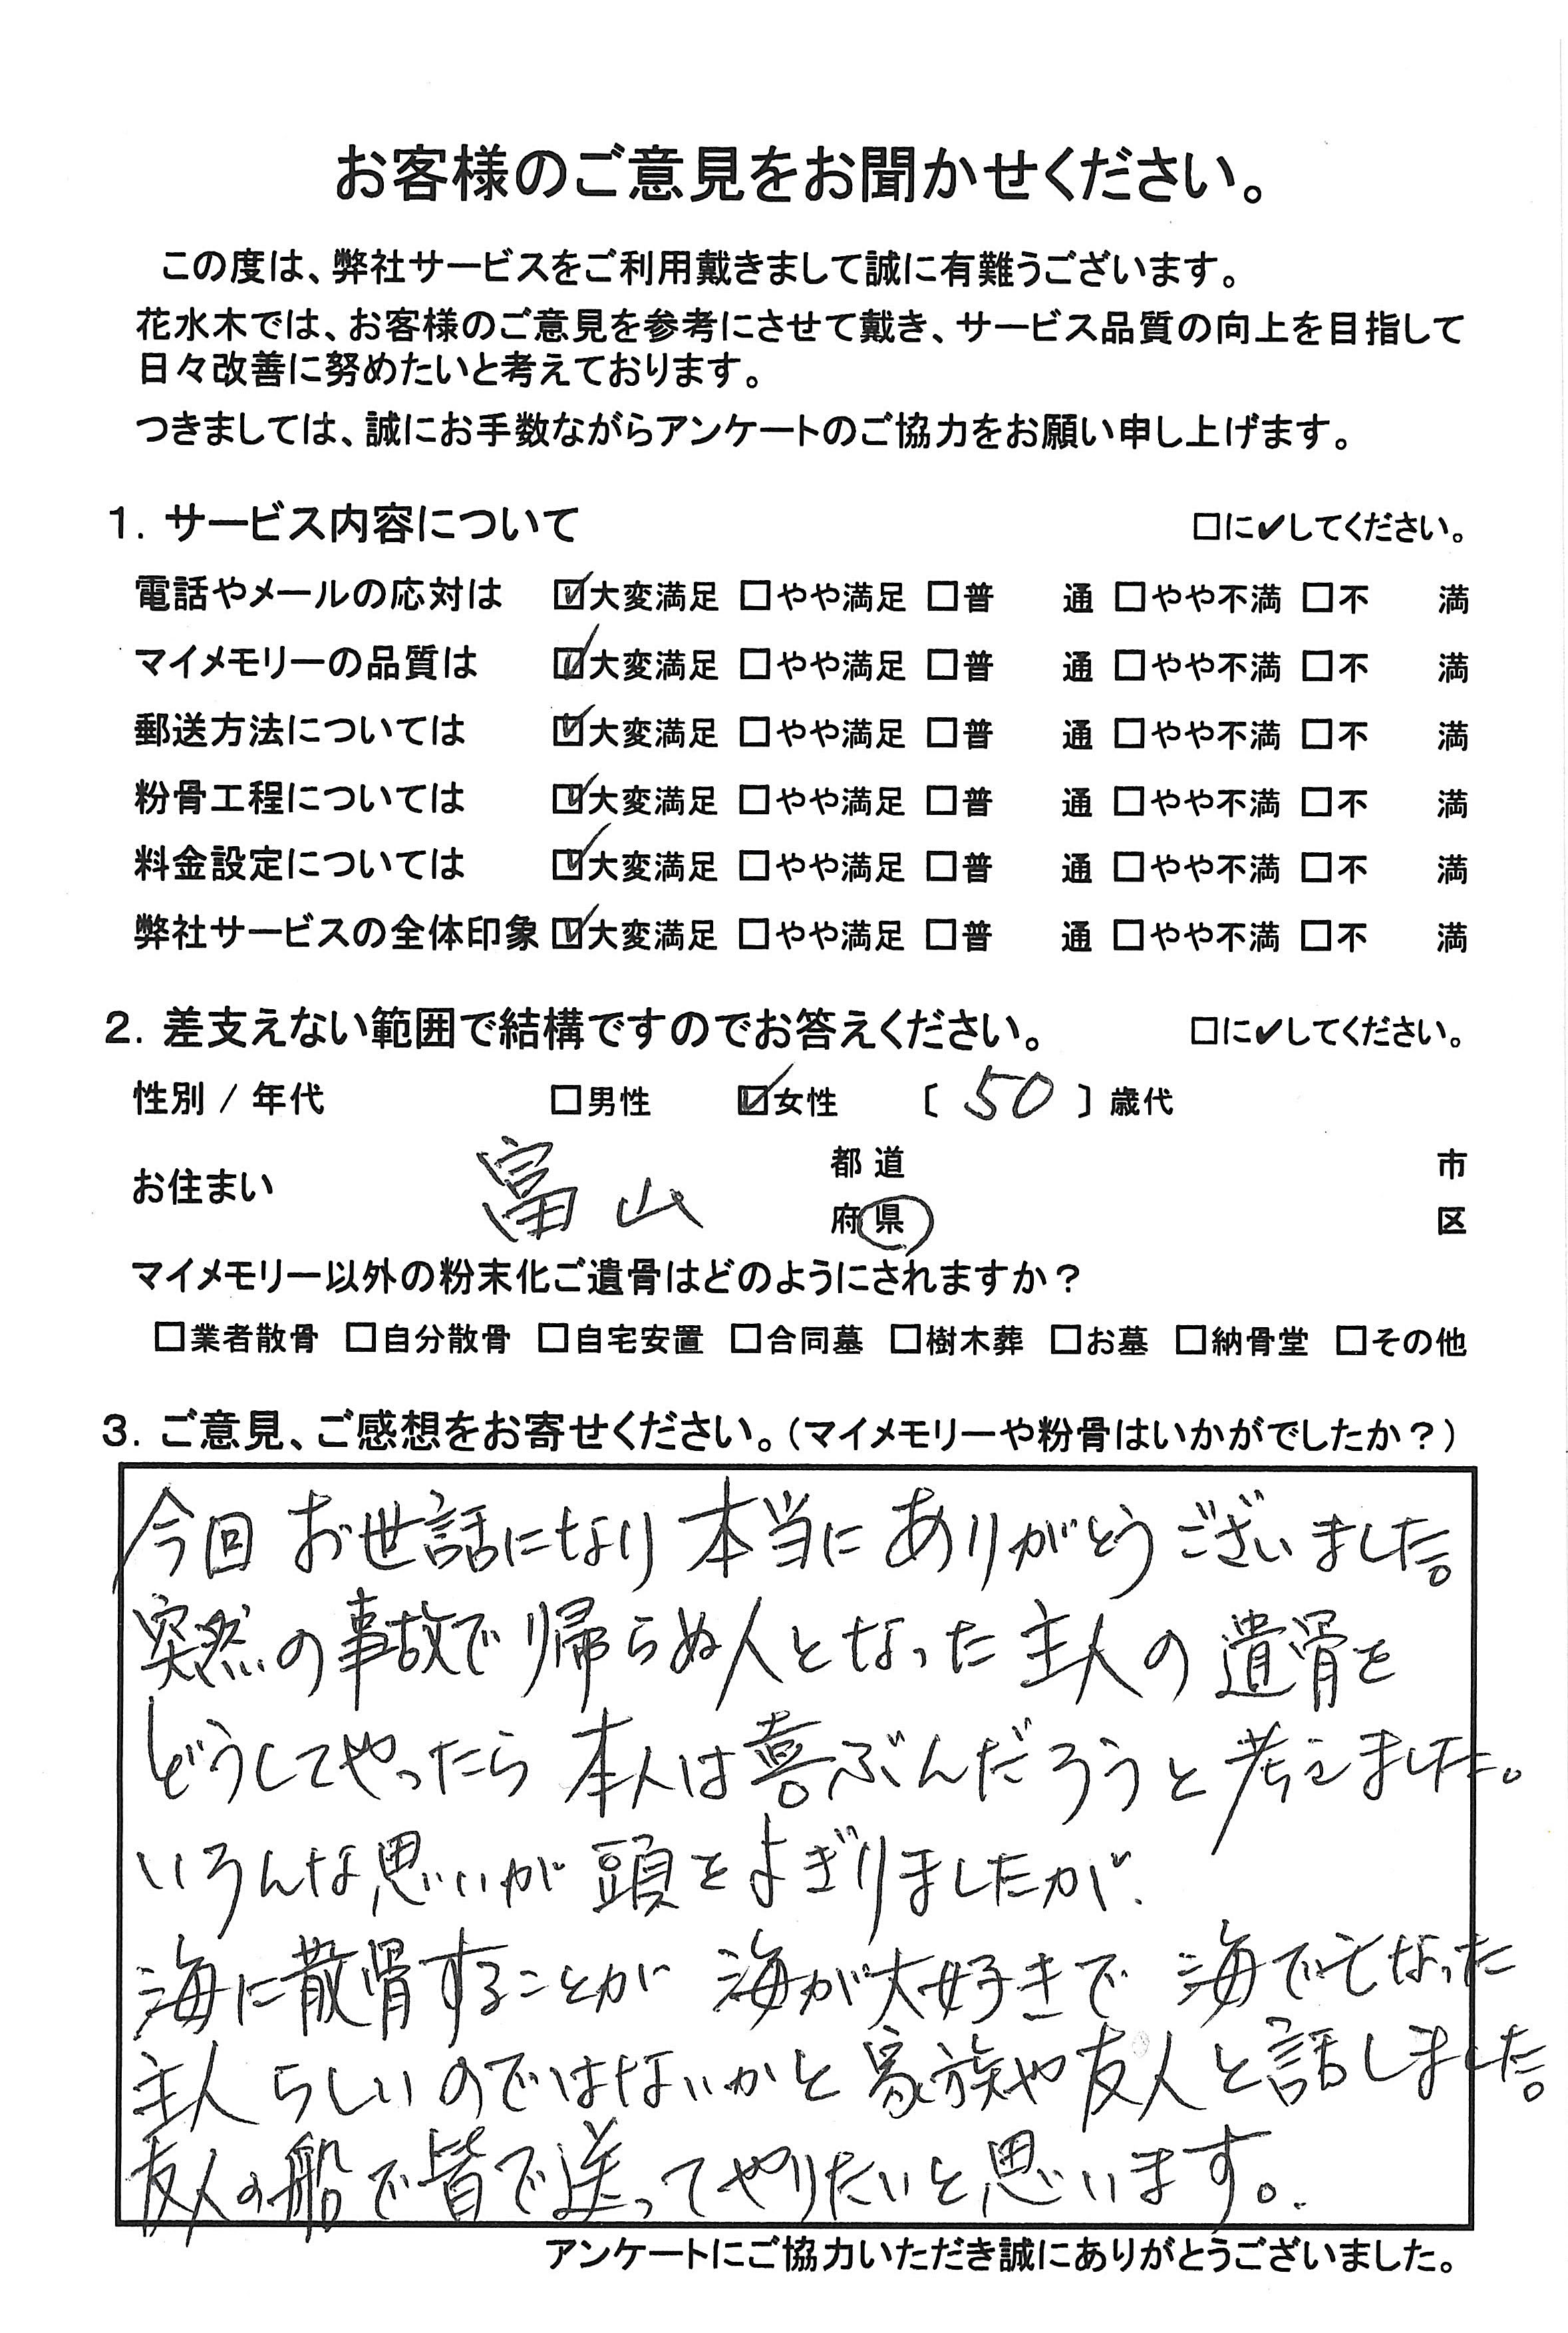 お客様のご意見をお聞かせください。
この度は、弊社サービスをご利用戴きまして誠に有難うございます。
花水木では、お客様のご意見を参考にさせて戴き、サービス品質の向上を目指して
日々改善に努めたいと考えております。
つきましては、誠にお手数ながらアンケートのご協力をお願い申し上げます。
1. サービス内容について □に✔してください。
電話やメールの応対は ☑大変満足 □やや満足 □普 通 □やや不満 □不 満
マイメモリーの品質は ☑大変満足 □やや満足 □普 通 □やや不満 □不 満
郵送方法については ☑大変満足 □やや満足 □普 通 □やや不満 □不 満
粉骨工程については ☑大変満足 □やや満足 □普 通 □やや不満 □不 満
料金設定については ☑大変満足 □やや満足 □普 通 □やや不満 □不 満
弊社サービスの全体印象 ☑大変満足 □やや満足 □普 通 □やや不満 □不 満
2. 差支えない範囲で結構ですのでお答えください。 □に✔してください。
性別 / 年代 □男性 ☑女性 〔 50 〕歳代
都道 市
お住まい 富山
府県 区
マイメモリー以外の粉末化ご遺骨はどのようにされますか？
□業者散骨 □自分散骨 □自宅安置 □合同墓 □樹木葬 □お墓 □納骨堂 □その他
3. ご意見、ご感想をお寄せください。（マイメモリーや粉骨はいかがでしたか？）
今回 お世話になり 本当に ありがとうございました。
突然の事故で帰らぬ人となった主人の遺骨を
どうしてやったら 本人は喜ぶんだろうと考えました。
いろんな思いが 頭をよぎりましたが、
海に散骨することが 海が大好きで 海で亡なった
主人らしいのではないかと 家族や友人と話しました。
友人の船で皆で送ってやりたいと思います。
アンケートにご協力いただき誠にありがとうございました。